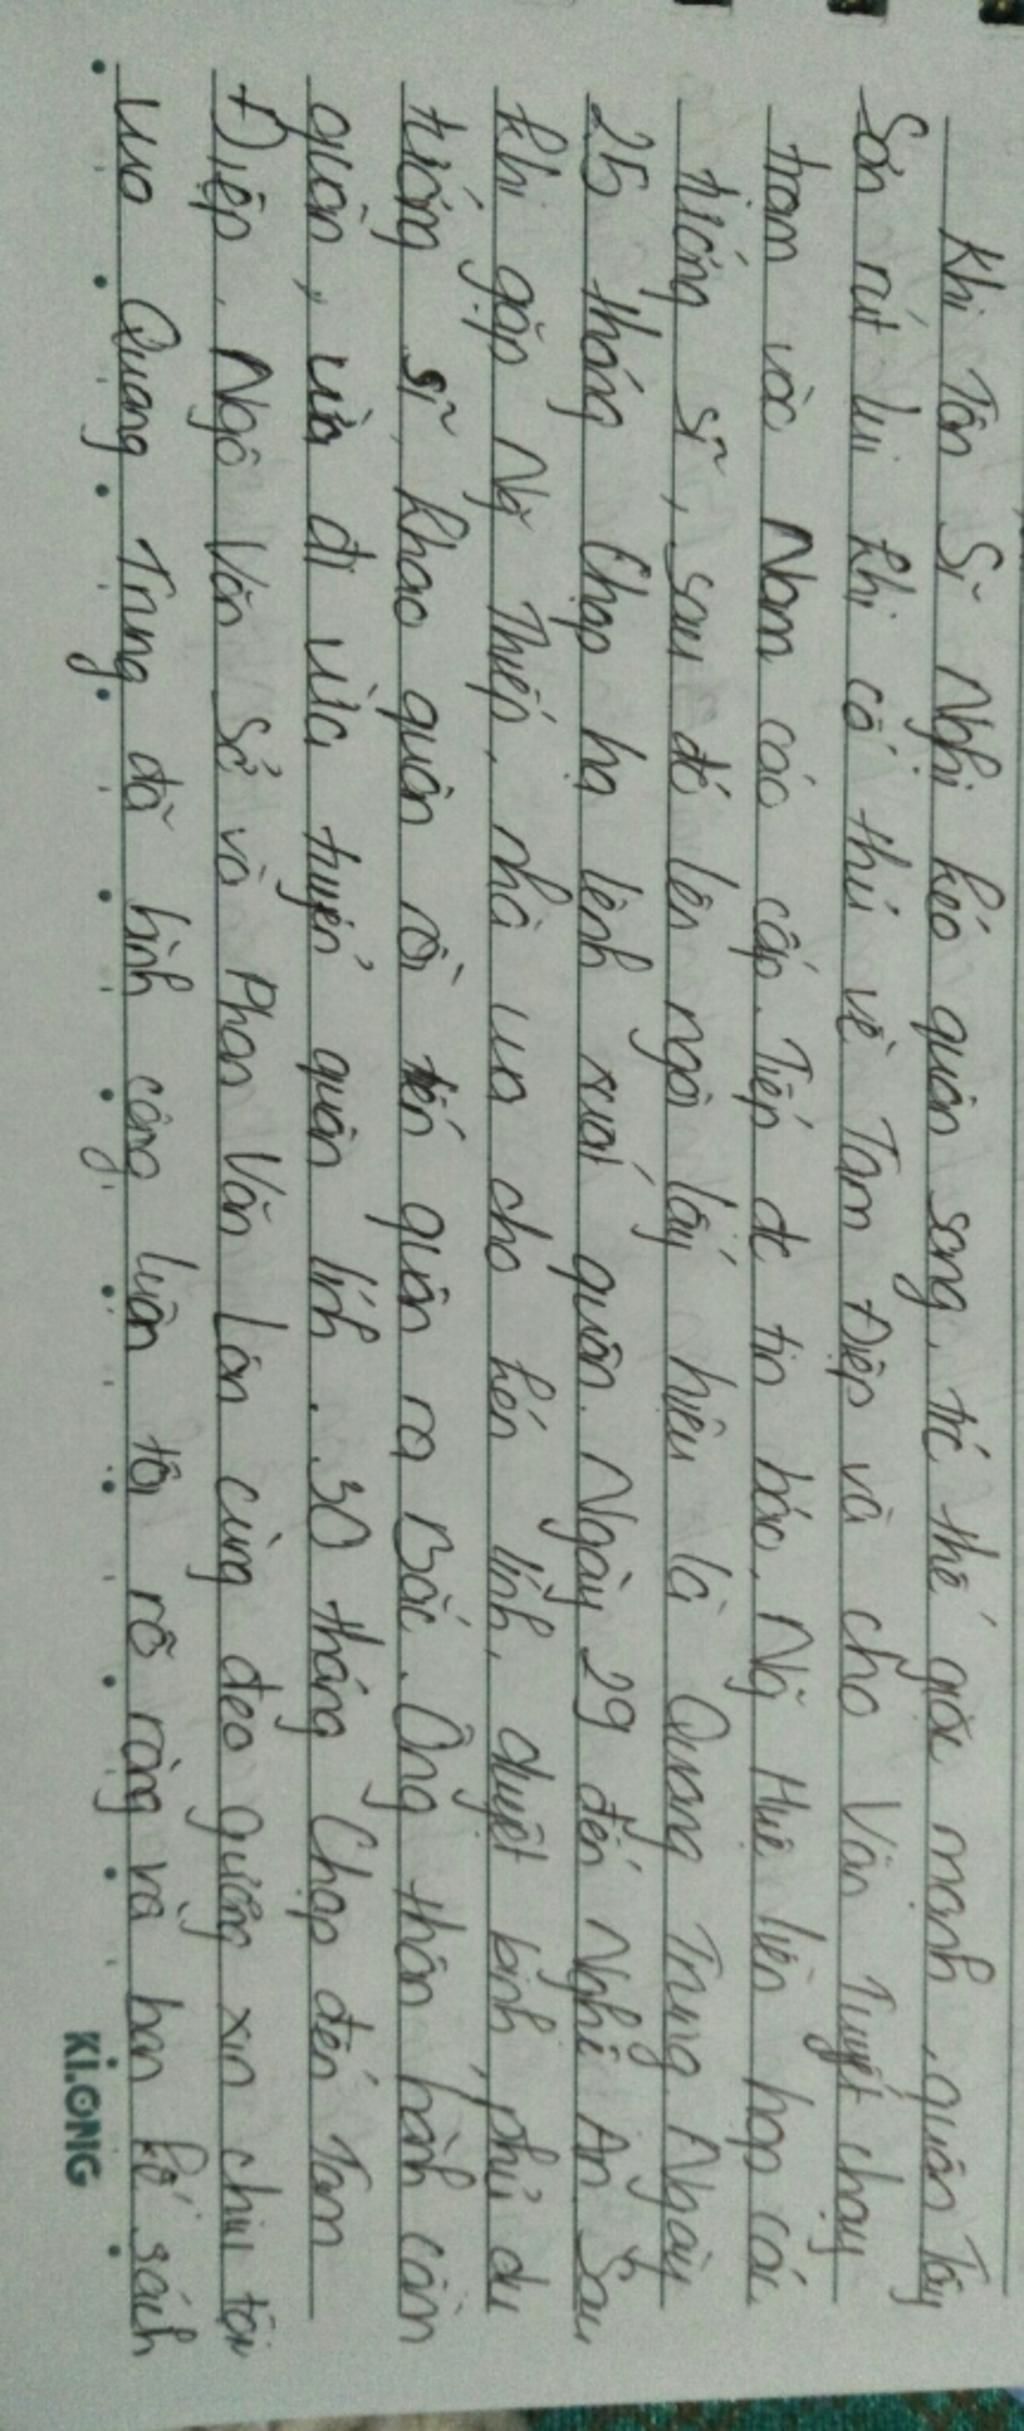 Khi Tôn Sĩ Nghị kéo quân sang, thế giặc mạnh, quân Tây
Sơn rút lui khi cố thủ về Tam Điệp và cho Văn Tuyết chạy
trạm vào Nam cáo cấp. Tiếp đc tin báo, Ng~ Huệ liền họp các
tướng sĩ, sau đó lên ngôi lấy hiệu là Quang Trung. Ngày
25 tháng Chạp hạ lệnh xuất quân. Ngày 29 đến Nghệ An. Sau
khi gặp Ng~ Thiếp, nhà vua cho kén lính, duyệt binh, phủ dụ
tướng sĩ, khao quân rồi tiến quân ra Bắc. Ông thân hành cầm
quân, vừa đi vừa tuyển quân lính. 30 tháng Chạp đến Tam
Điệp, Ngô Văn Sở và Phan Văn Lân cùng đeo gươm xin chịu tội
vua Quang Trung đã bình công luận tội rõ ràng và bàn kế sách
KLONG